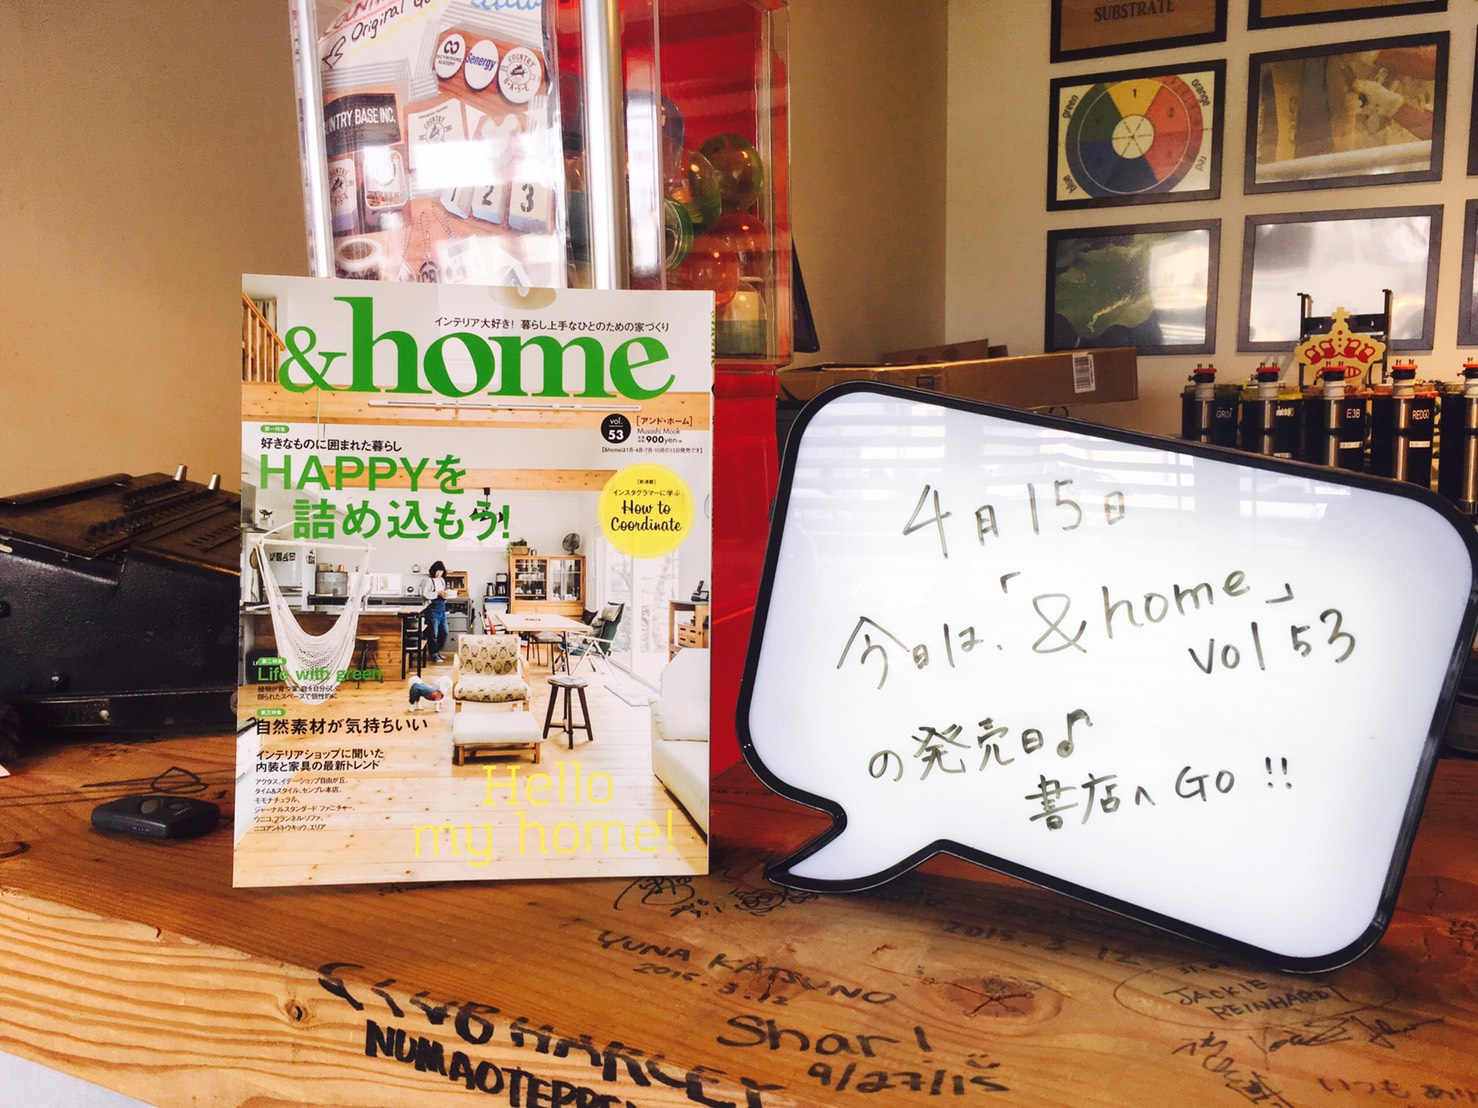 Original
Senergy
COUNTRY
COUNTRY BASE INC.
1 2 3
SUBSTRATE
green
1
orange
red
blue
インテリア大好き！ 暮らし上手なひとのための家づくり
&home
vol.
53
[アンド・ホーム]
Musashi Mook
900yen
【&homeは1月・4月・7月・10月の15日発売です】
第一特集
好きなものに囲まれた暮らし
HAPPYを
詰め込もう!
[新連載]
インスタグラマーに学ぶ
How to
Coordinate
第二特集
Life with green
植物が育つ家、庭を自分らしく、
限られたスペースで個性的に
第三特集
自然素材が気持ちいい
インテリアショップに聞いた
内装と家具の最新トレンド
アクタス、イデーショップ自由が丘、
タイム&スタイル、センプレ本店、
モモナチュラル、
ジャーナルスタンダード ファニチャー、
ウニコ、フランネルソファ、
ニコアンドトウキョウ、エリア
Hello
my home!
E3B
REDGO
4月15日
今日は、「&home」
vol 53
の発売日♪
書店へ GO !!
YUNA KATSUNO
2015.3.12
2015.3.12
JACKIE
REINHARDT
Shari
9/27/15
HARLEY
いつも